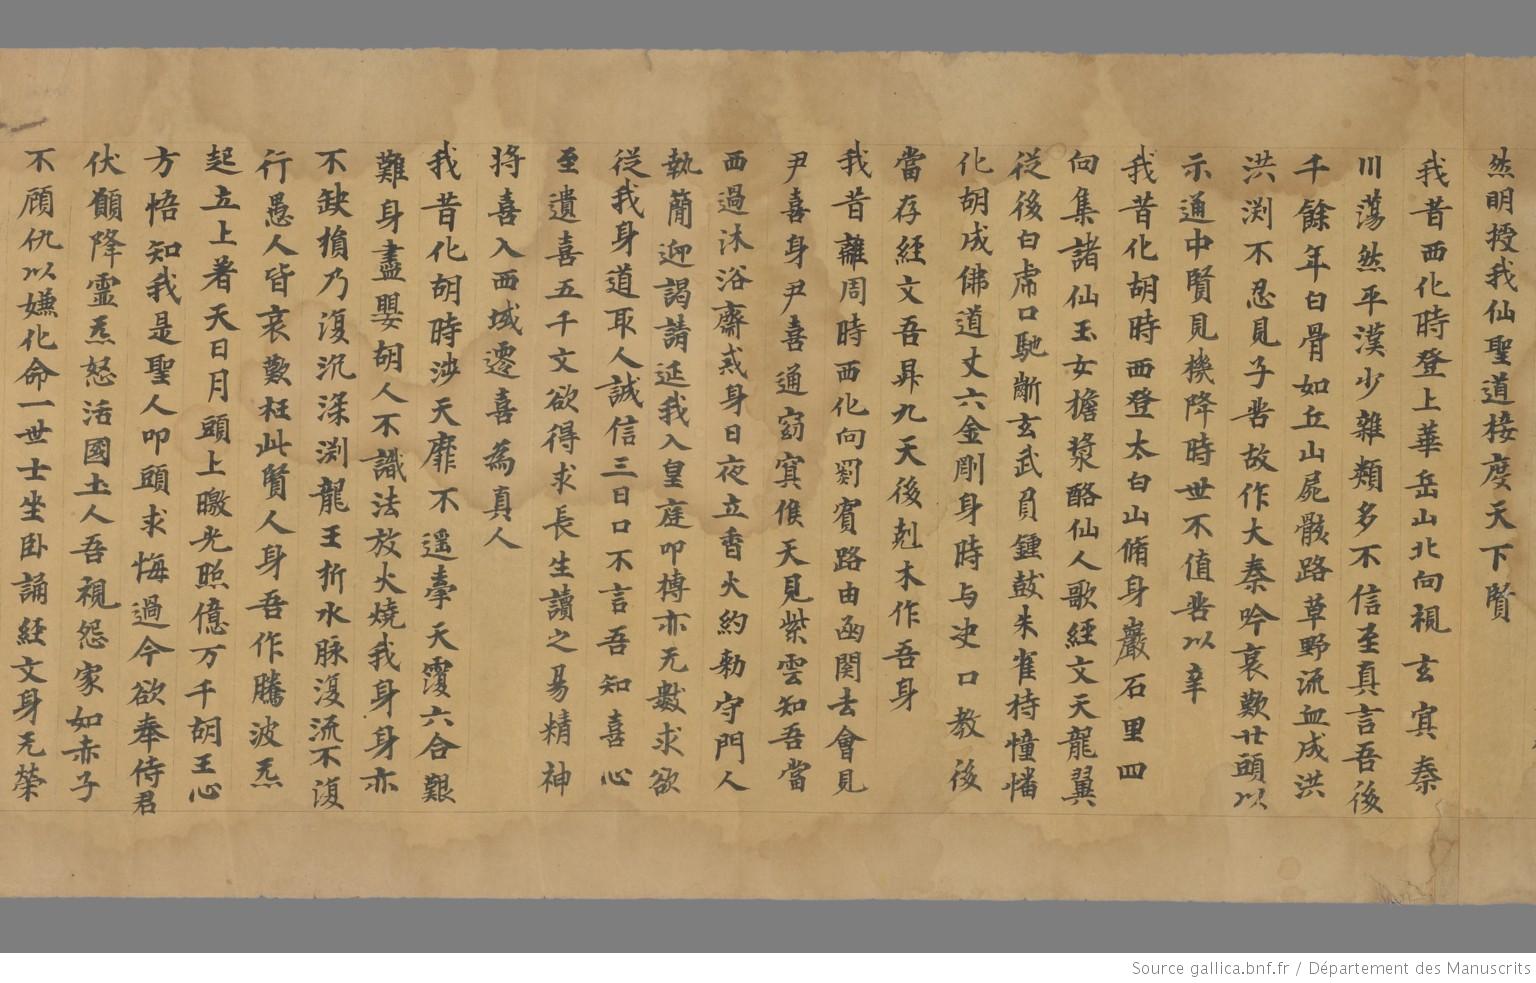 然明授我仙聖道接度天下賢
我昔西化時登上華岳山北向視玄冥秦
川蕩然平漢少雜類多不信至真言吾後
千餘年白骨如丘山屍骸路草野流血成洪
洪渕不忍見子辜故作大秦吟哀歎廿頭以
示通中賢見機降時世不值辜以辛
我昔化胡時西登太白山脩身巖石里四
向集諸仙玉女擔漿酪仙人歌經文天龍翼
從後白虎口馳斷玄武負鍾鼓朱雀持幢幡
化胡成佛道丈六金剛身時与决口教後
當存經文吾昇九天後剋木作吾身
我昔離周時西化向罽賓路由函関去會見
尹喜身尹喜通窈冥候天見紫雲知吾當
西過沐浴齋戒身日夜立香火約勑守門人
執簡迎謁請延我入皇庭叩槫亦无數求欲
從我身道取人誠信三日口不言吾知喜心
至遺喜五千文欲得求長生讀之易精神
将喜入西域遷喜為真人
我昔化胡時涉天靡不遥牽天覆六合艱
難身盡嬰胡人不識法放火燒我身身亦
不缺損乃復沉深渕龍王折水脉復流不復
行愚人皆哀歎枉此賢人身吾作騰波炁
起立上著天日月頭上暾光照億万千胡王心
方悟知我是聖人叩頭求悔過今欲奉侍君
伏願降靈炁怒活國土人吾視怨家如赤子
不顧仇以嫌化命一世士坐卧誦經文身无榮